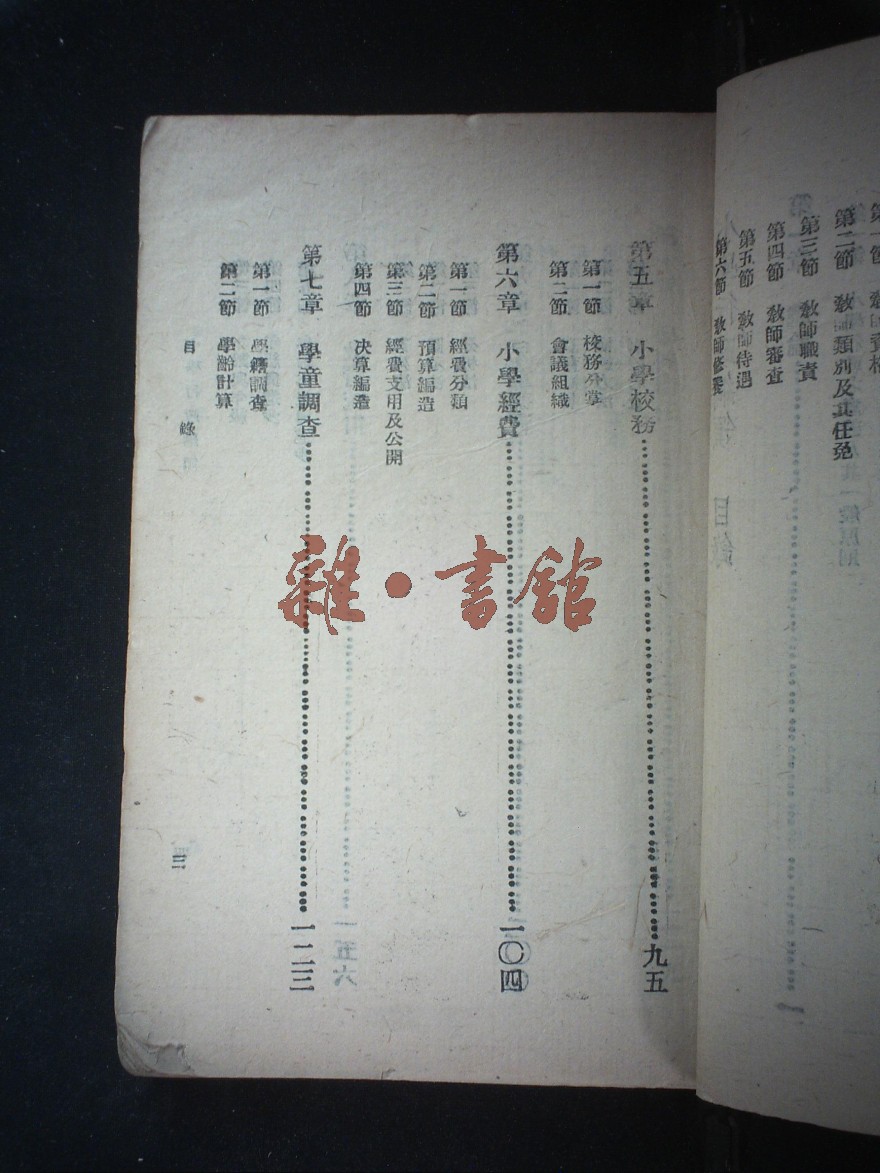 第二節　教師類別及其任免
第三節　教師職責
第四節　教師審查
第五節　教師待遇
第六節　教師修養
第五章　小學校務 九五
第一節　校務分掌
第二節　會議組織
第六章　小學經費 一〇四
第一節　經費分類
第二節　預算編造
第三節　經費支用及公開
第四節　決算編造
第七章　學童調查 一二三
第一節　學籍調查
第二節　學齡計算
目錄
三
雜·書館